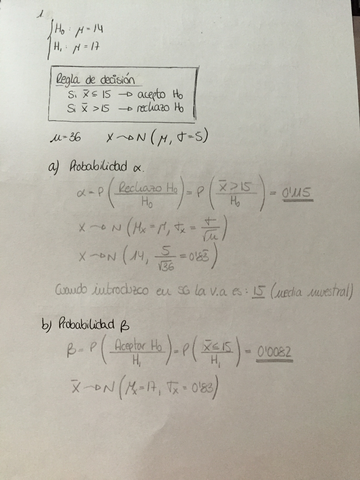 1.
H₀: μ = 14
H₁: μ = 17
Regla de decisión
Si x̄ ≤ 15 → acepto H₀
Si x̄ > 15 → rechazo H₀
n=36 X → N(μ, σ=5)
a) Probabilidad α.
α = P(Rechazo H₀ / H₀) = P(x̄ > 15 / H₀) = 0'115
X → N(μx = μ, σx = σ/√n)
X → N(14, 5/√36 = 0'83)
Cuando introduzco en SG la v.a es: 15 (media muestral)
b) Probabilidad β
β = P(Aceptar H₀ / H₁) = P(x̄ ≤ 15 / H₁) = 0'0082
X̄ → N(μx̄ = 17, σx̄ = 0'83)